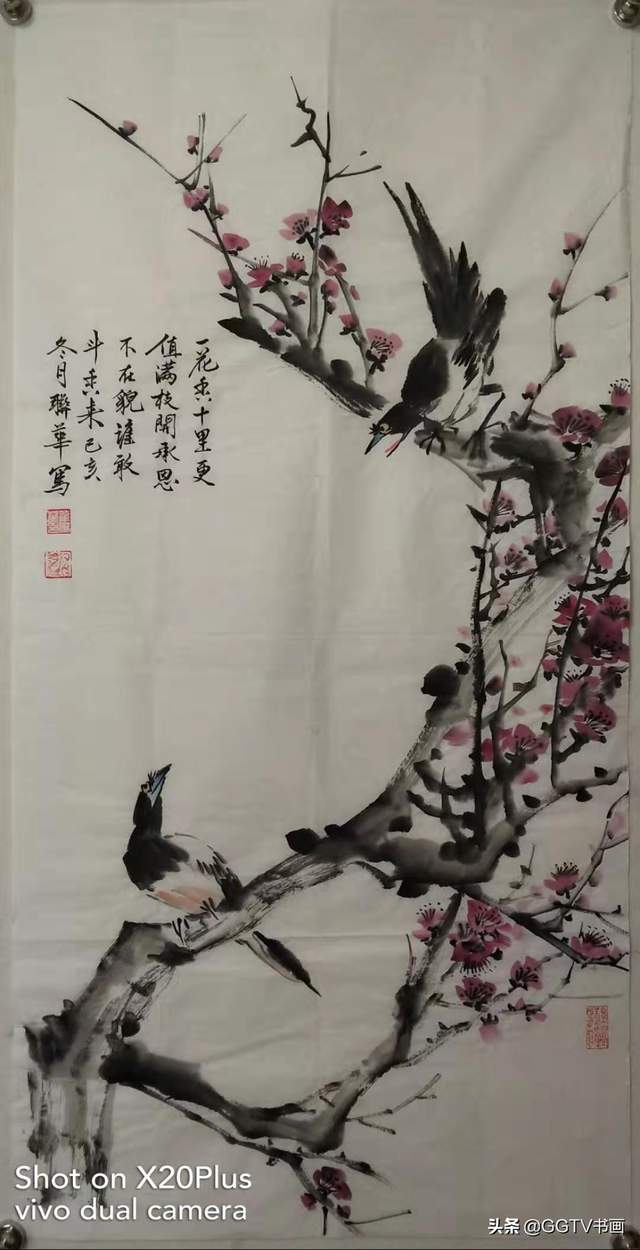 一花香十里更
值满枝開承恩
不在貌誰敢
斗香来己亥
冬月聯華寫
Shot on X20Plus
vivo dual camera
头条 @GGTV书画